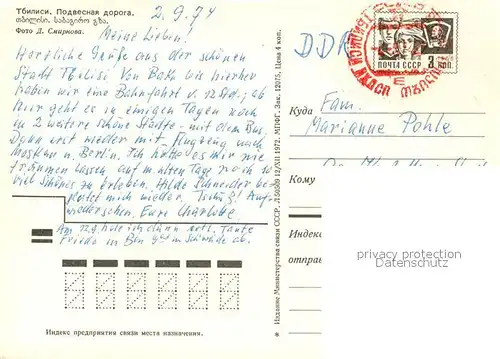 Тбилиси. Подвесная дорога.
თბილისი. საბაგირო გზა.
Фото Д. Смирнова.
2.9.74
Meine Lieben!
Herzliche Grüße aus der schönen
Stadt Tbilisi. Von Baku bis hierher
haben wir eine Bahnfahrt v. 12 Std.; ab
hier geht es in einigen Tagen noch
in 2 weitere schöne Städte - mit dem Bus,
Dann erst wieder mit Flugzeug nach
Moskau u. Berlin. Ich hätte es mir nie
träumen lassen auf m. alten Tage noch so
viel Schönes zu erleben. Hilde Schneider be-
gleitet mich wieder. Tschüß! Auf-
wiedersehen. Eure Charlotte.
Am 12.9. hole ich dann evtl. Tante
Frieda in Ben
ab.
Индекс предприятия связи места назначения.
Издание Министерства связи СССР. 12/XII 1972. МПФГ. Зак. 12075. Цена 4 коп.
DDR
ПОЧТА СССР
3 коп.
Куда
Fam.
Marianne Pohle
Кому
Индекс
отправ
privacy protection
watermark